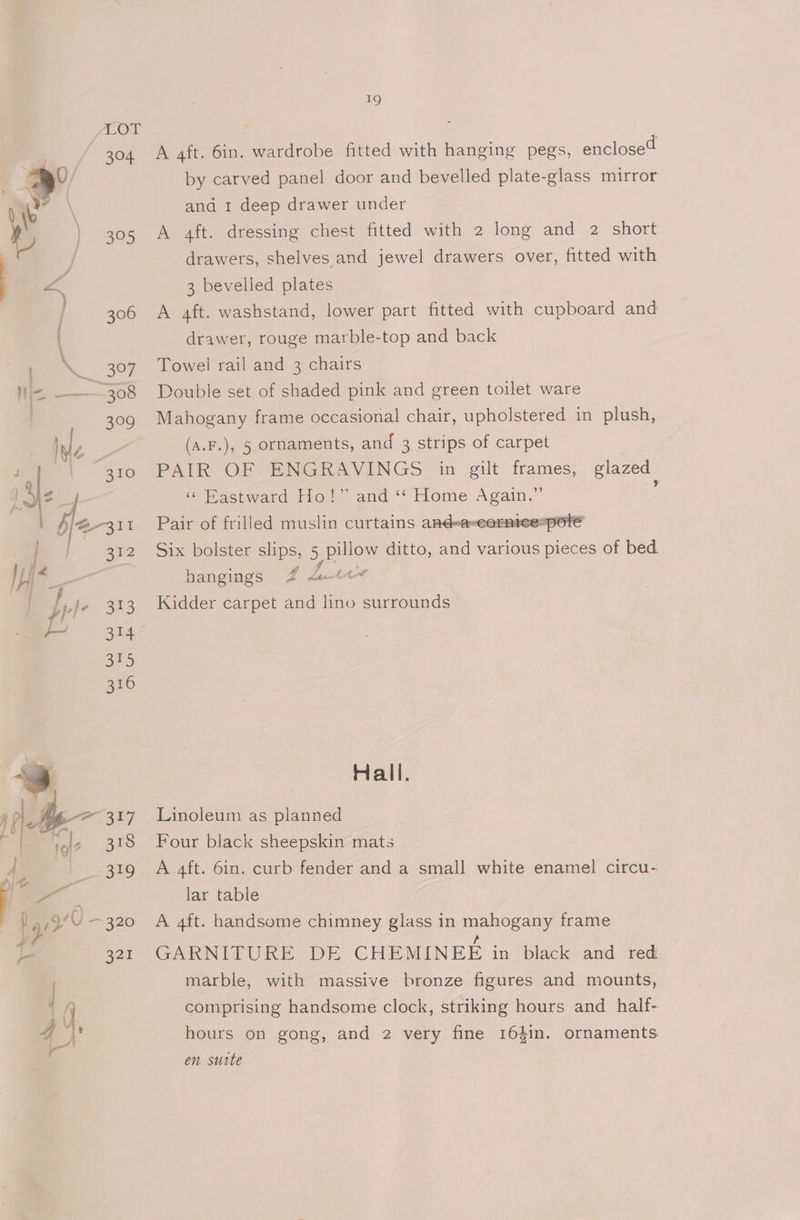 19
LOT
304 A 4ft. 6in. wardrobe fitted with hanging pegs, enclosed
by carved panel door and bevelled plate-glass mirror
and 1 deep drawer under
305 A 4ft. dressing chest fitted with 2 long and 2 short
drawers, shelves and jewel drawers over, fitted with
3 bevelled plates
306 A 4ft. washstand, lower part fitted with cupboard and
drawer, rouge marble-top and back
307 Towel rail and 3 chairs
308 Double set of shaded pink and green toilet ware
309 Mahogany frame occasional chair, upholstered in plush,
(A.F.), 5 ornaments, and 3 strips of carpet
310 PAIR OF ENGRAVINGS in gilt frames, glazed,
“Eastward Ho!” and “Home Again.”
311 Pair of frilled muslin curtains and a cornice pole
312 Six bolster slips, 5 pillow ditto, and various pieces of bed
hangings
313 Kidder carpet and lino surrounds
314
315
316
Hall.
317 Linoleum as planned
318 Four black sheepskin mats
319 A 4ft. 6in. curb fender and a small white enamel circu-
lar table
320 A 4ft. handsome chimney glass in mahogany frame
321 GARNITURE DE CHEMINEÉ in black and red
marble, with massive bronze figures and mounts,
comprising handsome clock, striking hours and half-
hours on gong, and 2 very fine 16½in. ornaments
en suite